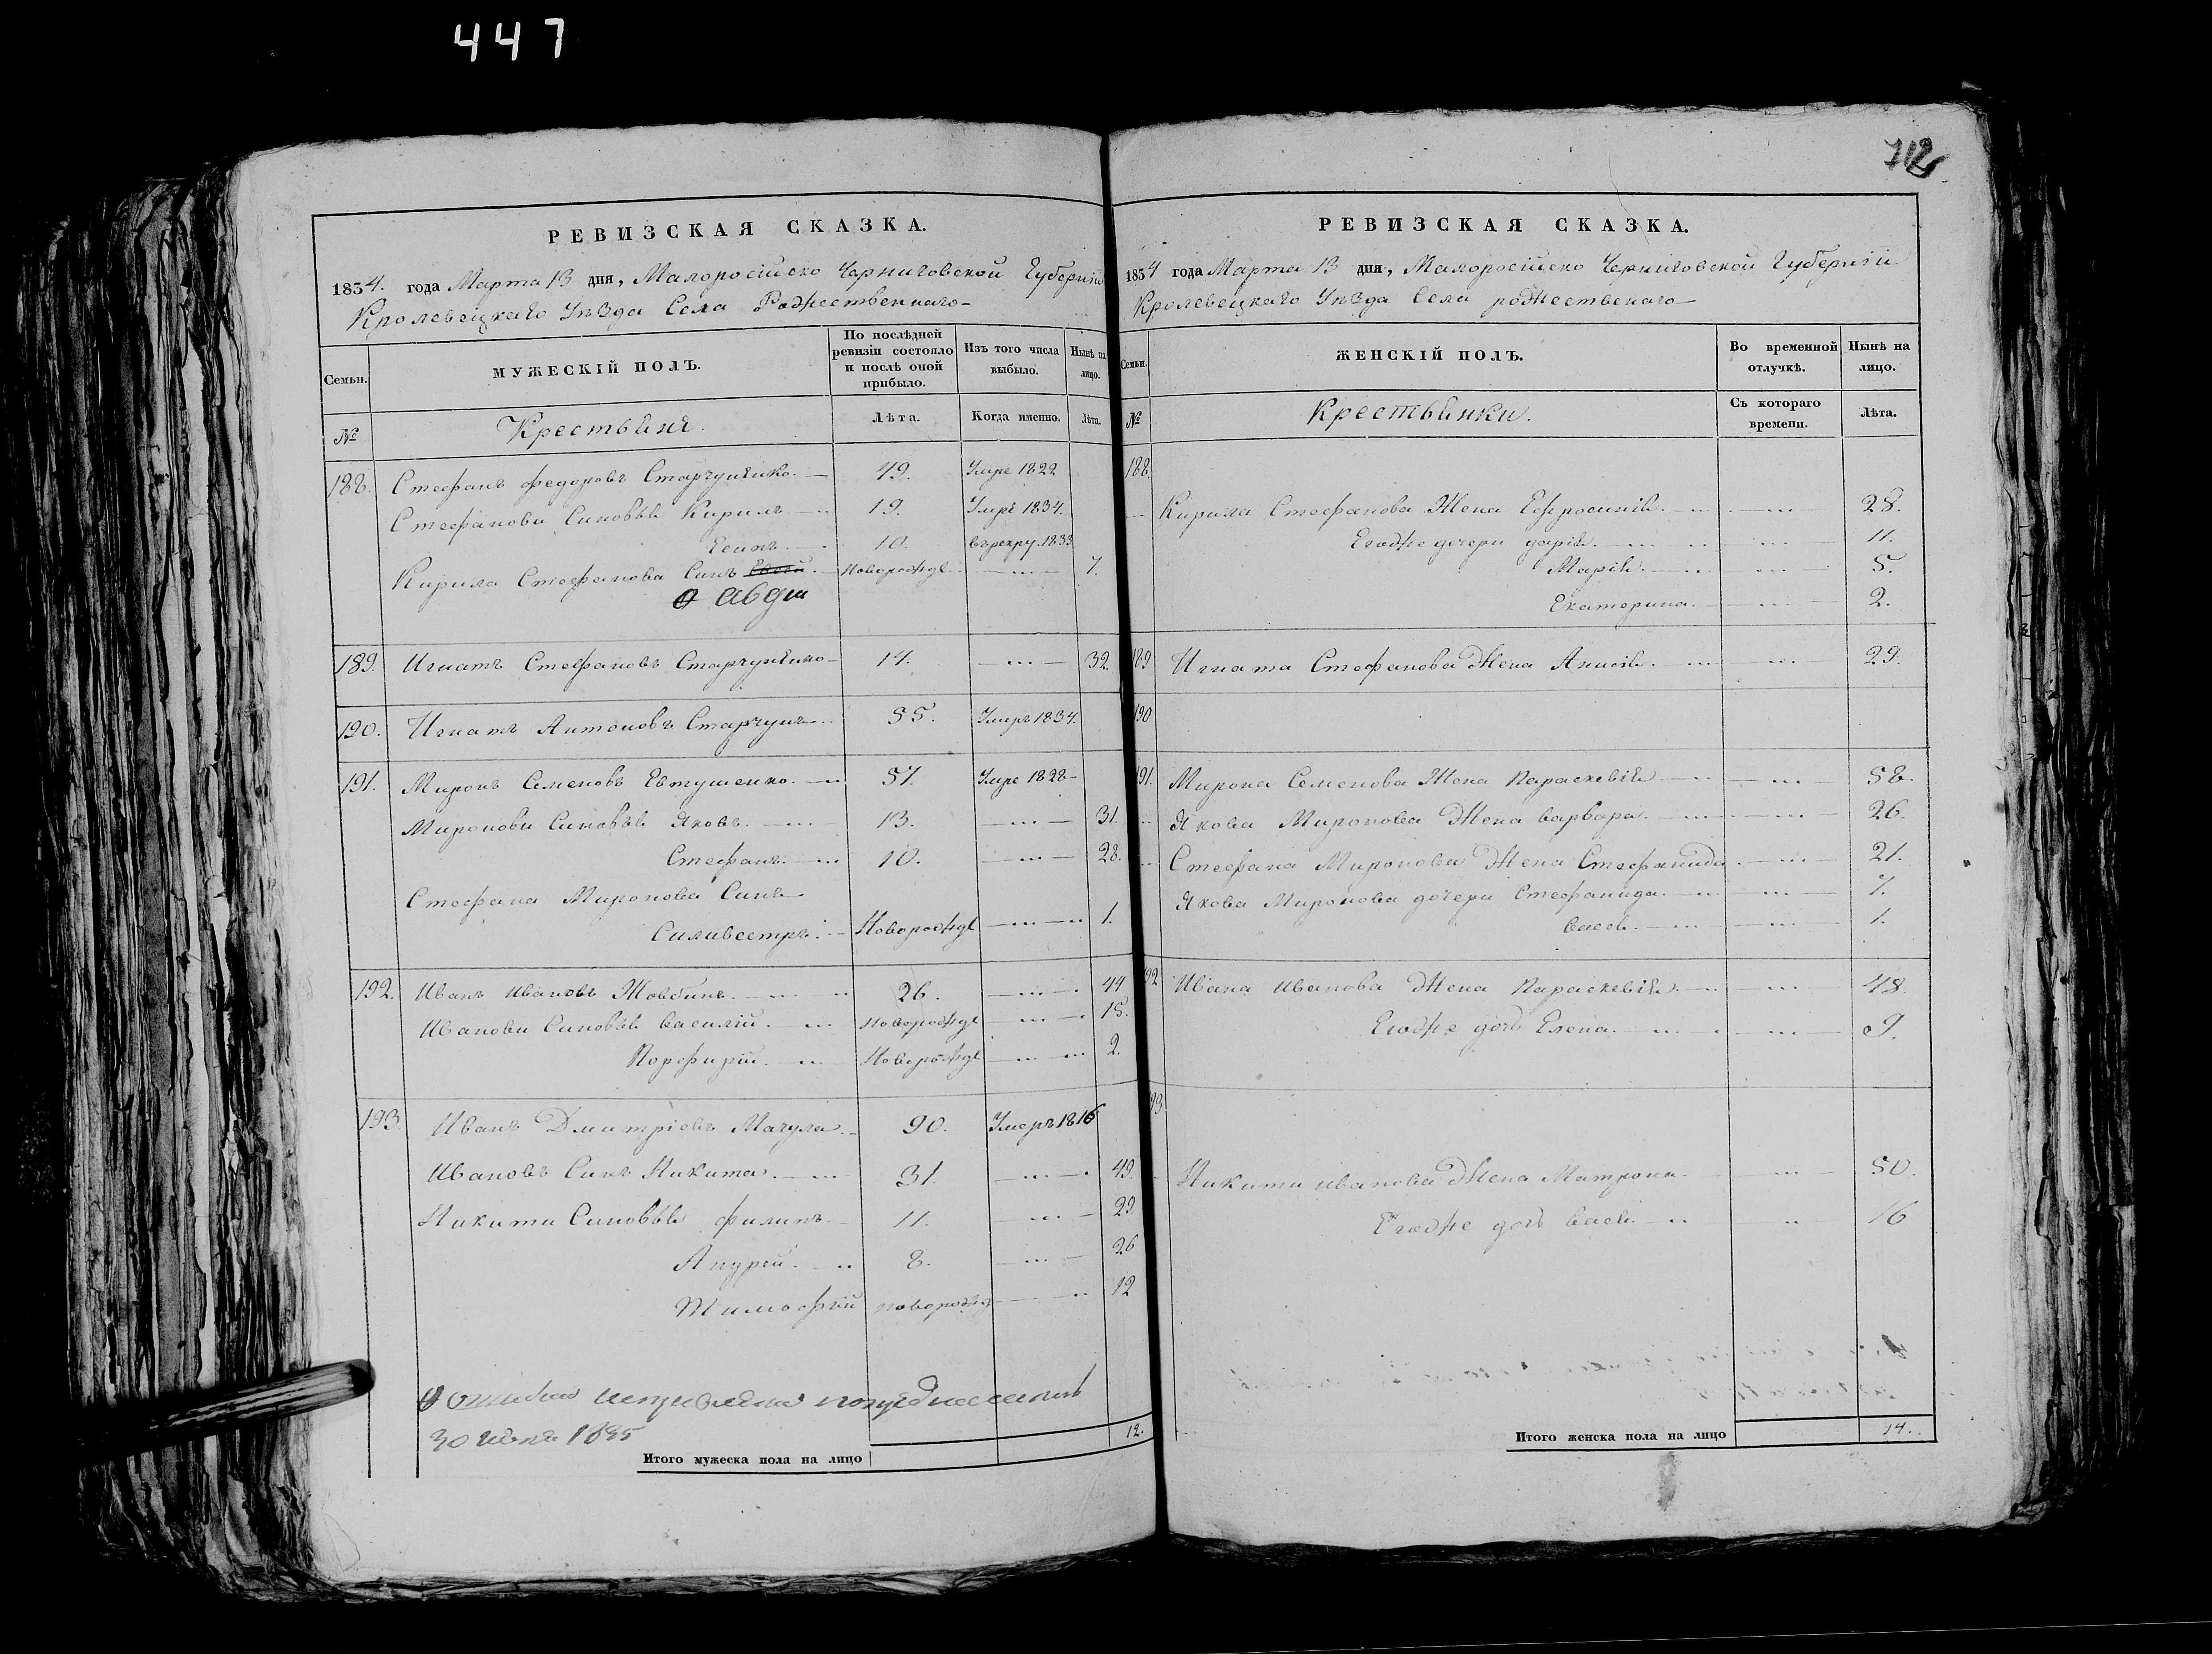 447
712
РЕВИЗСКАЯ СКАЗКА.
1834. года Марта 13 дня, Малоросійско Черниговской Губерніи
Кролевецкаго Уѣзда Села Рождественнаго
Семьи.
МУЖЕСКІЙ ПОЛЪ.
По послѣдней ревизіи состояло и послѣ оной прибыло.
Изъ того числа выбыло.
Нынѣ на лицо.
№
Крестьяне.
Лѣта.
Когда именно.
Лѣта.
188. Стефанъ Федоровъ Старчученко. 49. Умре 1822
Стефанови Синовья Кирилъ 19. Умре 1834.
10. в рекру. 1833
Кирила Стефанова Синъ Новорожде 7.
189. Игнатъ Стефановъ Старчученко 14. 32.
190. Игнатъ Антоновъ Старчунъ 55. Умеръ 1834.
191. Миронъ Семеновъ Евтушенко. 57. Умре 1828
Миронови Синовья Яковъ. 13. 31.
Стефанъ. 10. 28.
Стефана Миронова Синъ
Силивестръ. Новорожде 1.
192. Иванъ Ивановъ Жовбинъ. 26. 44
Иванови Синовья Василій. Новорожде 15.
Порфирій. Новорожде 2.
193. Иванъ Дмитріевъ Мачула 90. Умеръ 1816
Ивановъ Синъ Никита. 31. 49.
Никити Синовья Филипъ. 11. 29.
Андрей. 8. 26
Тимофѣй новорожд 12
30 1835
Итого мужеска пола на лицо 12.
РЕВИЗСКАЯ СКАЗКА.
1834 года Марта 13 дня, Малоросійско Черниговской Губерніи
Кролевецкаго Уѣзда Села рождественаго
Семьи.
ЖЕНСКІЙ ПОЛЪ.
Во временной отлучкѣ.
Нынѣ на лицо.
№
Крестьянки.
Съ котораго времени.
Лѣта.
188.
Кирила Стефанова Жена Ефросинія. 28.
Егожде дочери дарія. 11.
Марія. 5.
Екатерина. 2.
189 Игната Стефанова Жена Анисія. 29.
190
191. Мирона Семенова Жена Параскевія 58.
Якова Миронова Жена варвара. 26.
Стефана Миронова Жена Стефанида 21.
Якова Миронова дочери Стефанида. 7.
васса. 1.
192 Ивана Иванова Жена Параскевія. 48.
Егожде дочь Елена. 9.
193
Никити иванова Жена Матрона. 50.
Егожде дочь васса. 16
Итого женска пола на лицо 14.